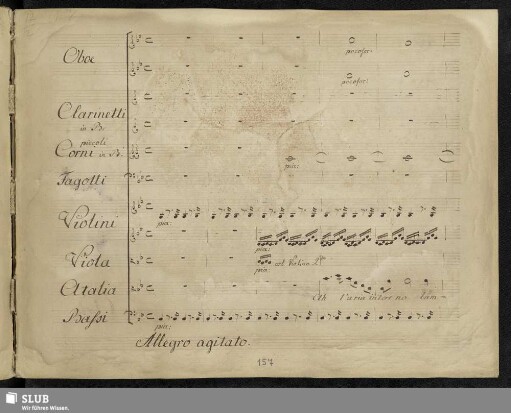 Oboe
poco for:
poco for:
Clarinetti
in B.
piccoli
Corni in B.
pia:
Fagotti
Violini
pia:
pia:
Viola
col Violino 2do
pia:
Atalia
Ah l'aria intorno
Bassi
pia:
Allegro agitato.
157
SLUB
Wir führen Wissen.